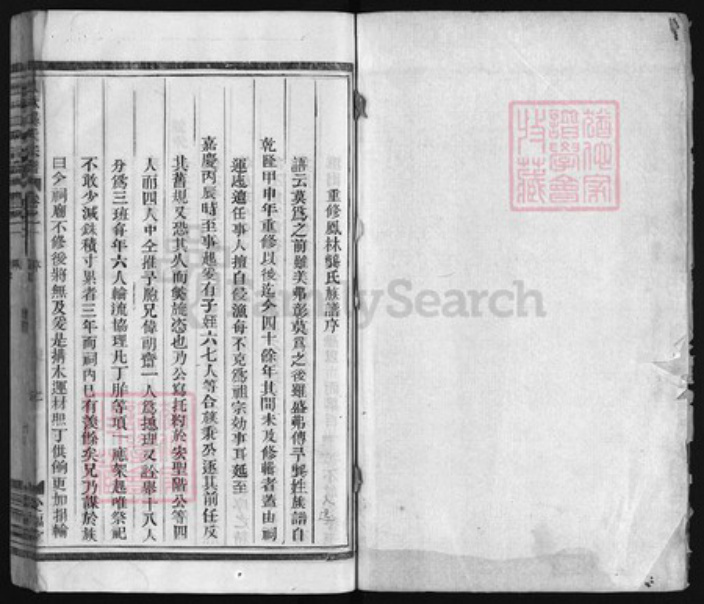 重修鳳林龔氏族譜序
語云莫爲之前雖美弗彰莫爲之後雖盛弗傳予龔姓族譜自
乾隆甲申年重修以後迄今四十餘年其間未及修輯者蓋由祠
運迍邅任事人擅自侵漁每不克爲祖宗効事耳延至
嘉慶丙辰時至事起爰有子姪六七人等合族秉公逐其前任反
其舊規又恐其久而獘施恣也乃公寫托約於安聖階公等四
人而四人中仝推予胞兄偉朝齋一人爲總理又詮舉十八人
分爲三班每年六人輪流協理凡丁胙等項一應架起唯祭祀
不敢少減銖積寸累者三年而祠內已有羨餘矣兄乃謀於族
曰今祠廟不修後將無及爰是搆木運材照丁供飯更加捐輸
FamilySearch